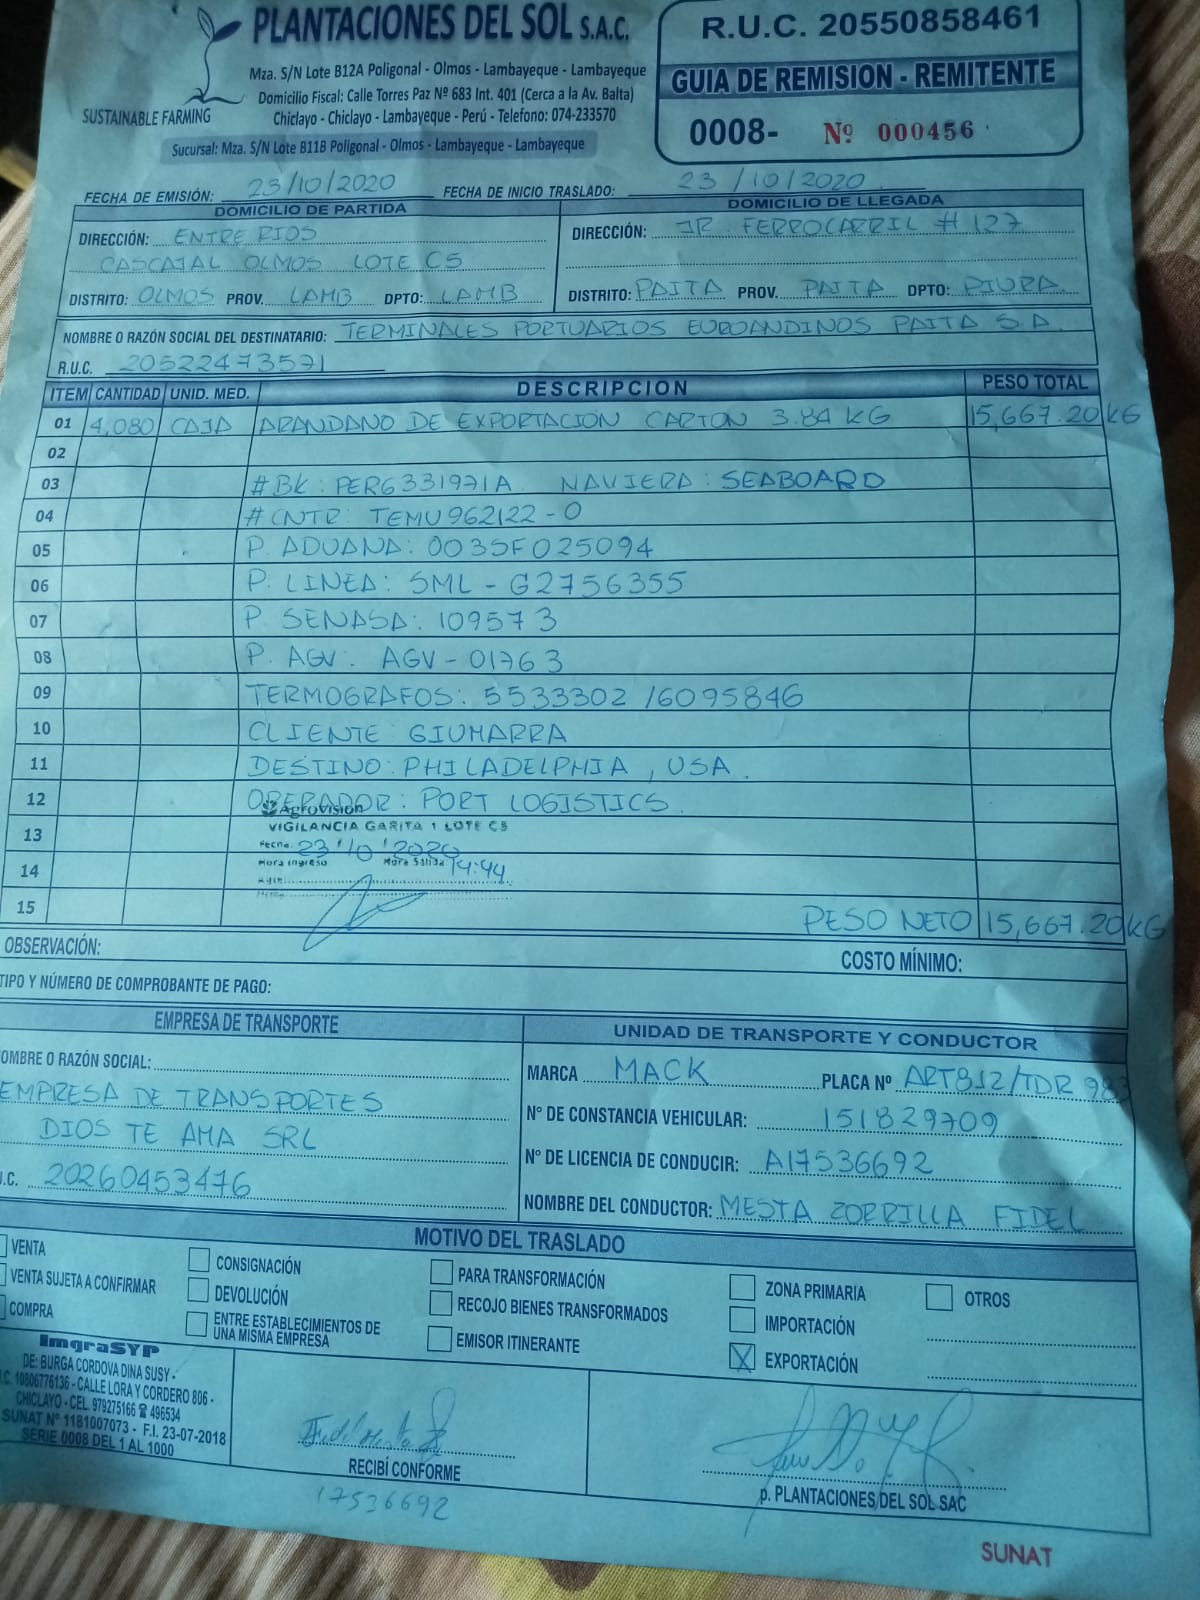 PLANTACIONES DEL SOL S.A.C.
Mza. S/N Lote B12A Poligonal - Olmos - Lambayeque - Lambayeque
Domicilio Fiscal: Calle Torres Paz Nº 683 Int. 401 (Cerca a la Av. Balta)
Chiclayo - Chiclayo - Lambayeque - Perú - Telefono: 074-233570
SUSTAINABLE FARMING
Sucursal: Mza. S/N Lote B11B Poligonal - Olmos - Lambayeque - Lambayeque
R.U.C. 20550858461
GUIA DE REMISION - REMITENTE
0008- Nº 000456
FECHA DE EMISIÓN: 23/10/2020 FECHA DE INICIO TRASLADO: 23/10/2020
DOMICILIO DE PARTIDA
DIRECCIÓN: ENTRE RIOS
CASCAJAL OLMOS LOTE C5
DISTRITO: OLMOS PROV. LAMB DPTO: LAMB
DOMICILIO DE LLEGADA
DIRECCIÓN: JR. FERROCARRIL # 127
DISTRITO: PAITA PROV. PAITA DPTO: PIURA
NOMBRE O RAZÓN SOCIAL DEL DESTINATARIO: TERMINALES PORTUARIOS EUROANDINOS PAITA S.A.
R.U.C. 20522473571
ITEM CANTIDAD UNID. MED. DESCRIPCION PESO TOTAL
01 4,080 CAJA ARANDANO DE EXPORTACION CARTON 3.84 KG 15,667.20 KG
02
03 #BK: PER6331971A NAVIERA: SEABOARD
04 #CNTR: TEMU962122-0
05 P. ADUANA: 0035F025094
06 P. LINEA: SML-G2756355
07 P. SENASA: 109573
08 P. AGV. AGV-01763
09 TERMOGRAFOS: 5533302 /6095846
10 CLIENTE: GIUMARRA
11 DESTINO: PHILADELPHIA, USA.
12 OPERADOR: PORT LOGISTICS.
AgroVision
13 VIGILANCIA GARITA 1 LOTE C5
Fecha: 23/10/2020
14 Hora Ingreso Hora Salida 14:44
15 PESO NETO 15,667.20 KG
OBSERVACIÓN:
COSTO MÍNIMO:
TIPO Y NÚMERO DE COMPROBANTE DE PAGO:
EMPRESA DE TRANSPORTE
OMBRE O RAZÓN SOCIAL:
EMPRESA DE TRANSPORTES
DIOS TE AMA SRL
.C. 20260453476
UNIDAD DE TRANSPORTE Y CONDUCTOR
MARCA MACK PLACA Nº ART812/TDR 983
Nº DE CONSTANCIA VEHICULAR: 151829709
Nº DE LICENCIA DE CONDUCIR: A17536692
NOMBRE DEL CONDUCTOR: MESTA ZORRILLA FIDEL
MOTIVO DEL TRASLADO
VENTA
VENTA SUJETA A CONFIRMAR
COMPRA
CONSIGNACIÓN
DEVOLUCIÓN
ENTRE ESTABLECIMIENTOS DE
UNA MISMA EMPRESA
PARA TRANSFORMACIÓN
RECOJO BIENES TRANSFORMADOS
EMISOR ITINERANTE
ZONA PRIMARIA
IMPORTACIÓN
X EXPORTACIÓN
OTROS
ImgraSYP
DE: BURGA CORDOVA DINA SUSY -
.C. 10806776136 - CALLE LORA Y CORDERO 806 -
CHICLAYO - CEL. 979275166 ☎ 496534
SUNAT Nº 1181007073 - F.I. 23-07-2018
SERIE 0008 DEL 1 AL 1000
RECIBÍ CONFORME
17536692
p. PLANTACIONES DEL SOL SAC
SUNAT